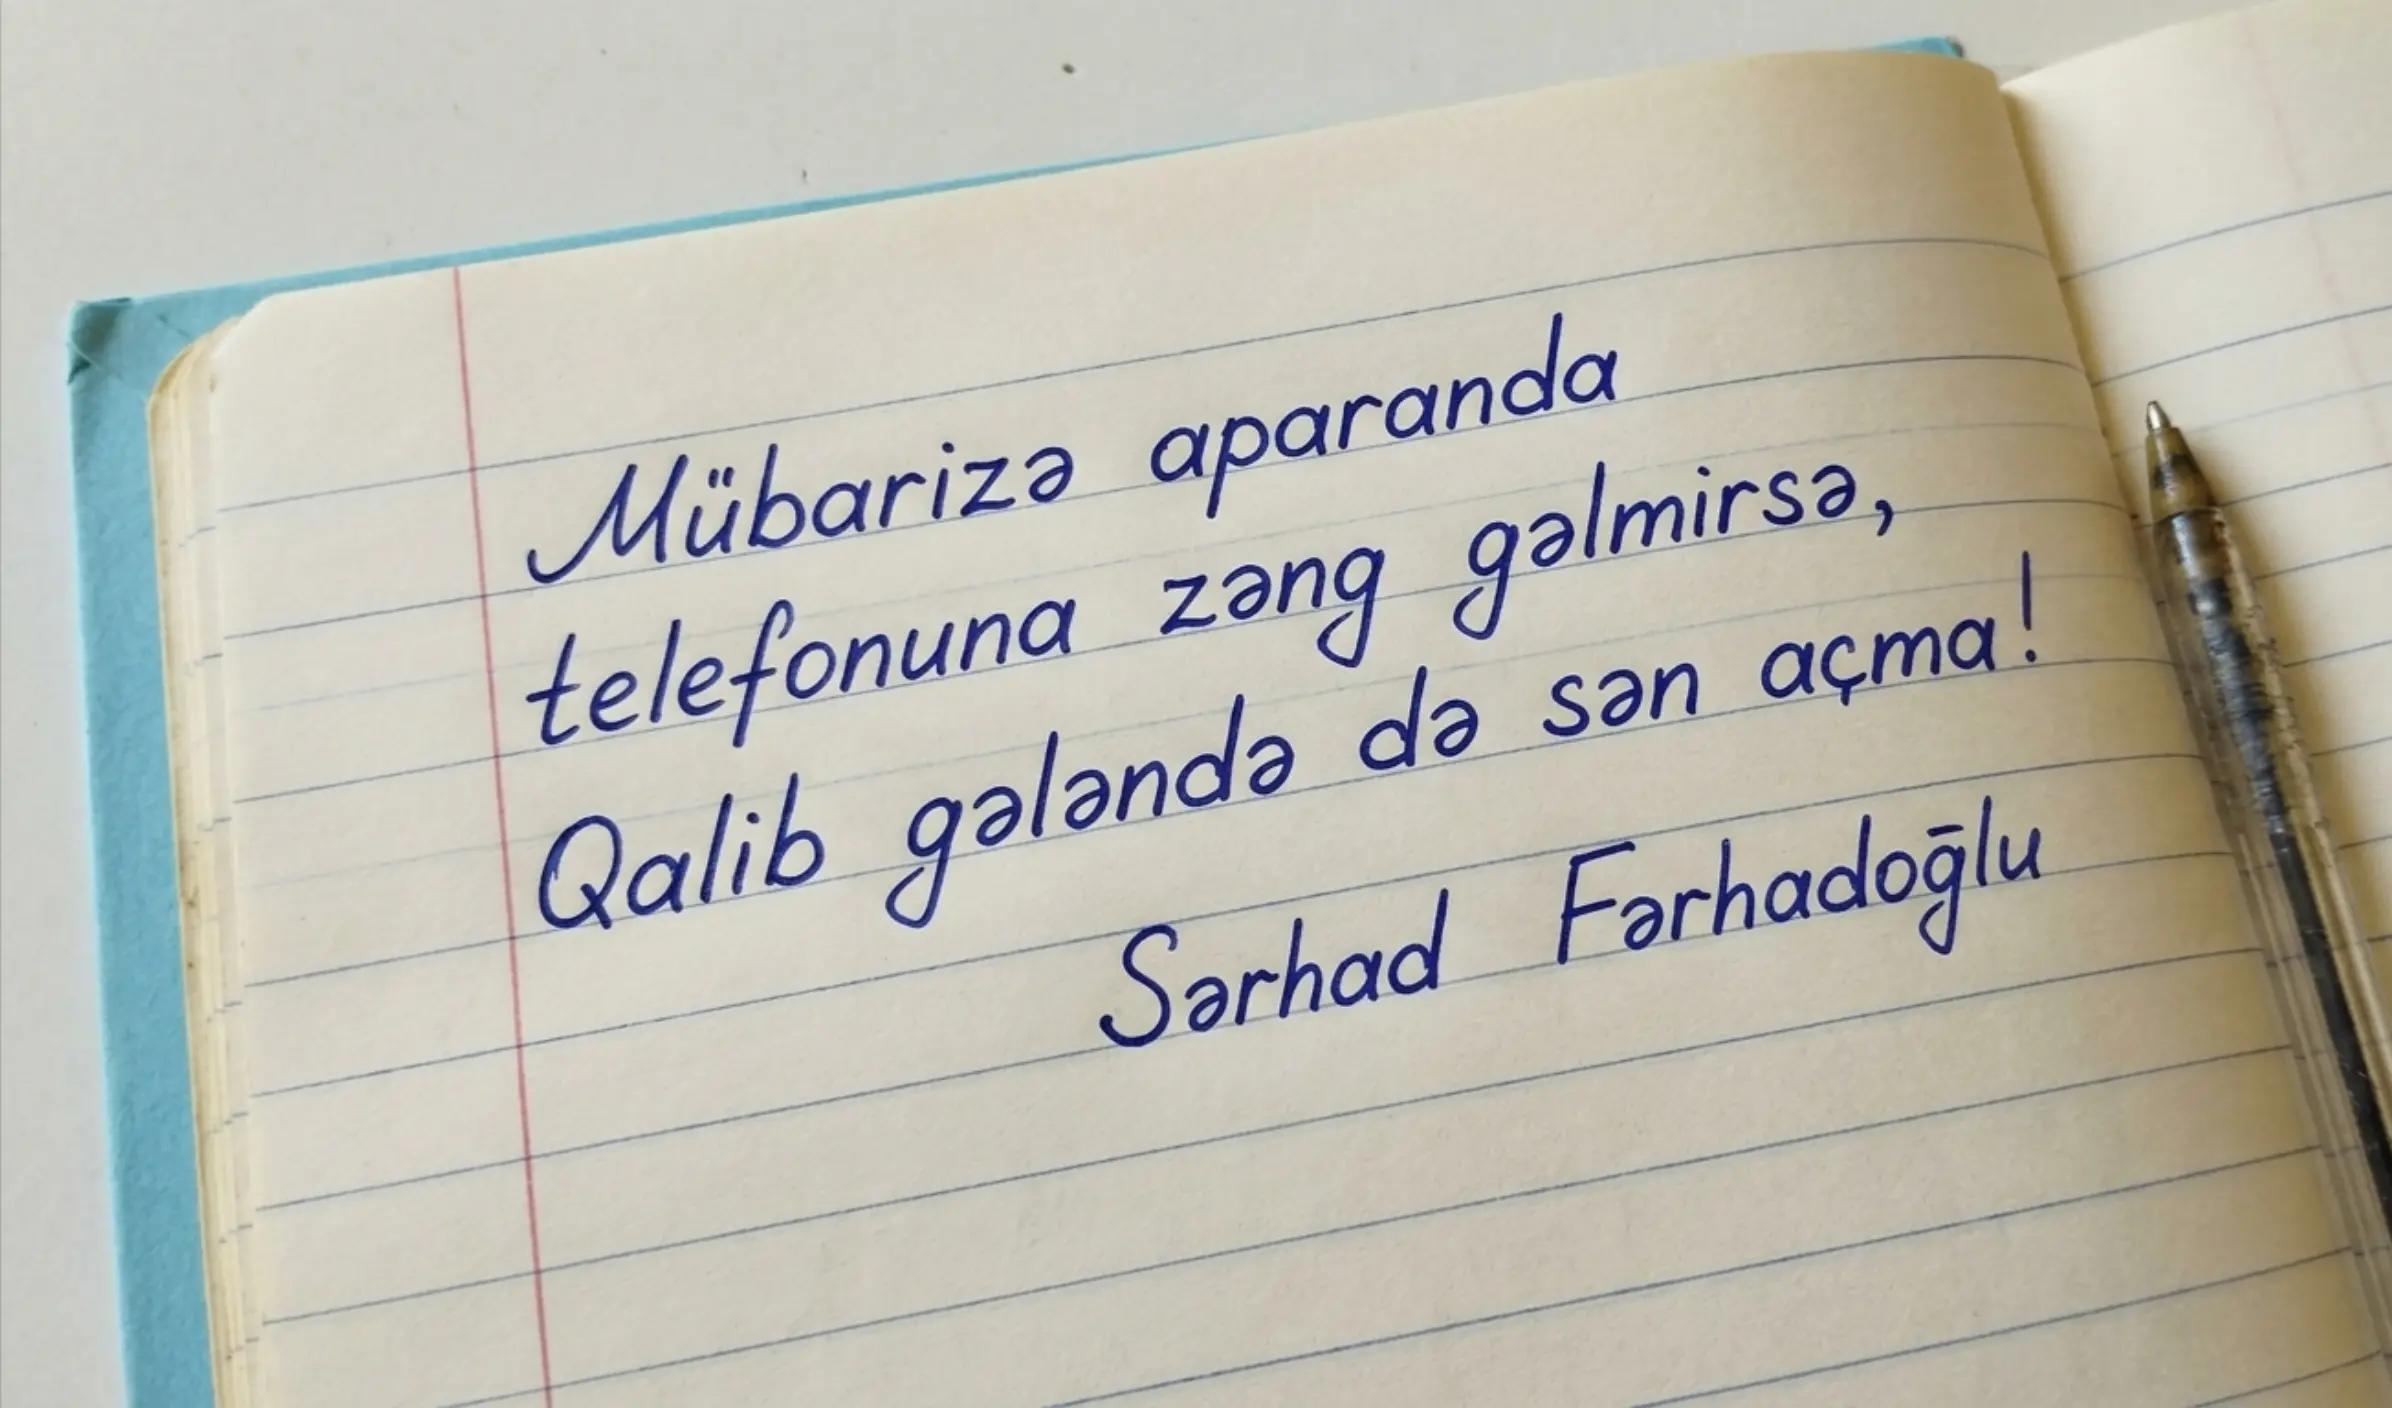 Mübarizə aparanda
telefonuna zəng gəlmirsə,
Qalib gələndə də sən açma!
Sərhad Fərhadoğlu